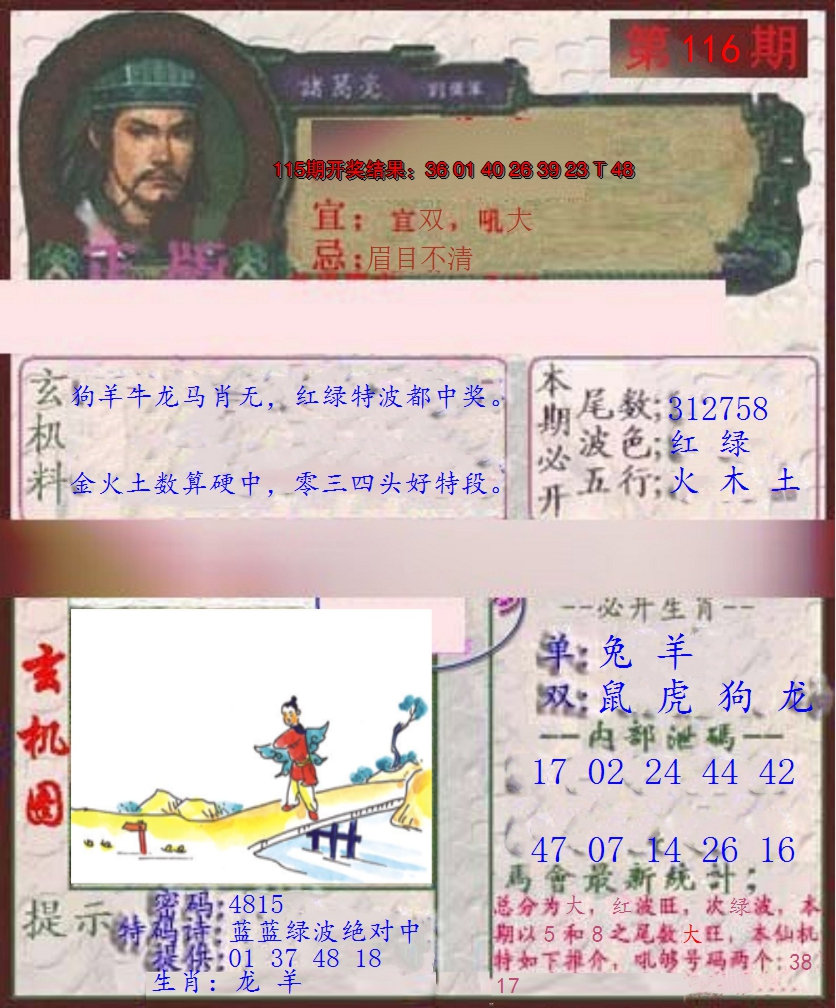 第116期
諸葛亮
115期开奖结果：36 01 40 26 39 23 T 48
宜：宜双，吼大
忌：眉目不清
正版
玄机料
狗羊牛龙马肖无，红绿特波都中奖。
金火土数算硬中，零三四头好特段。
本期必开
尾数：312758
波色：红 绿
五行：火 木 土
玄机图
--必开生肖--
单：兔 羊
双：鼠 虎 狗 龙
--内部泄碼--
17 02 24 44 42
47 07 14 26 16
馬會最新統計；
总分为大，红波旺，次绿波，本
期以5和8之尾数大旺，本仙机
特如下推介，吼够号码两个：38
17
提示
密码：4815
特码诗：蓝蓝绿波绝对中
提供：01 37 48 18
生肖：龙 羊